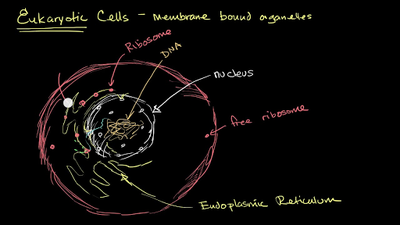 Eukaryotic Cells - membrane bound organelles
Ribosome
DNA
nucleus
free ribosome
Endoplasmic Reticulum